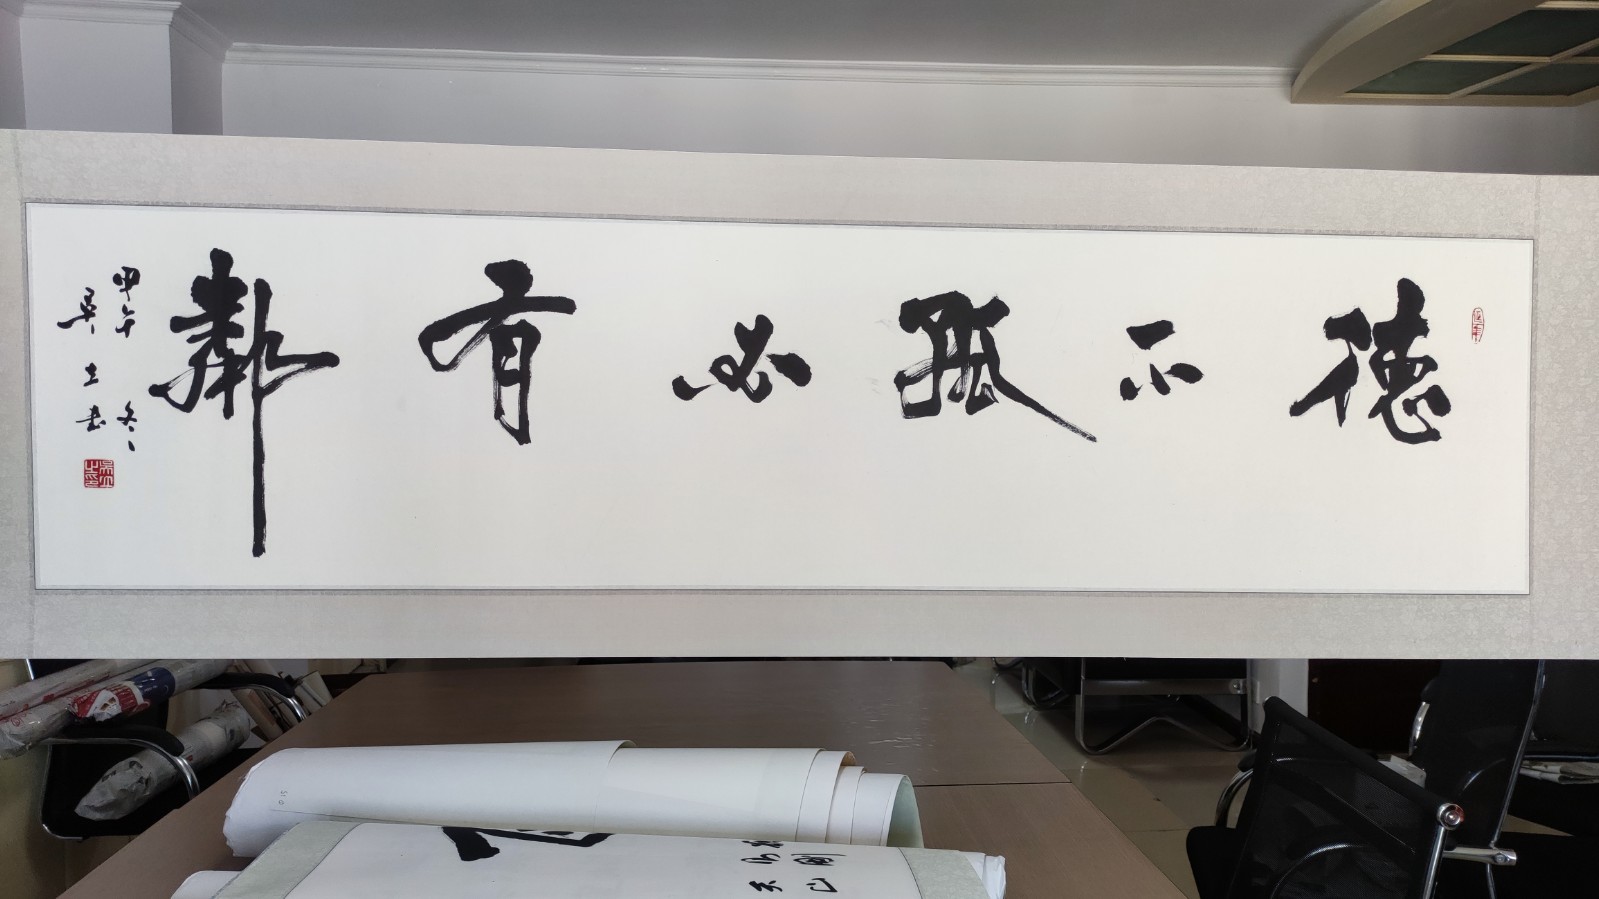 德不孤必有鄰
甲午冬
吳士書